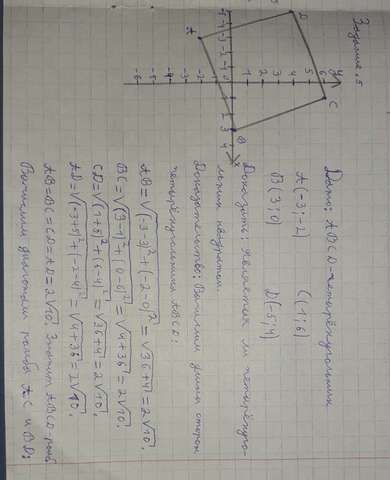 Задание 5
Дано: ABCD-четырёхугольник
A(-3;-2) C(1;6)
B(3;0) D(-5;4)
Доказать: является ли четырёхуго-
льник квадратом.
Доказательство: Вычислим длины сторон
четырёхугольника ABCD:
AB=√(-3-3)²+(-2-0)²=√36+4=2√10;
BC=√(3-1)²+(0-6)²=√4+36=2√10;
CD=√(1+5)²+(6-4)²=√36+4=2√10;
AD=√(-3+5)²+(-2-4)²=√4+36=2√10.
AB=BC=CD=AD=2√10. Значит ABCD-ромб
Вычислим диагонали ромба AC и BD:
y
6
5
4
3
2
1
0
-1
-2
-3
-4
-5
-6
x
A
B
C
D